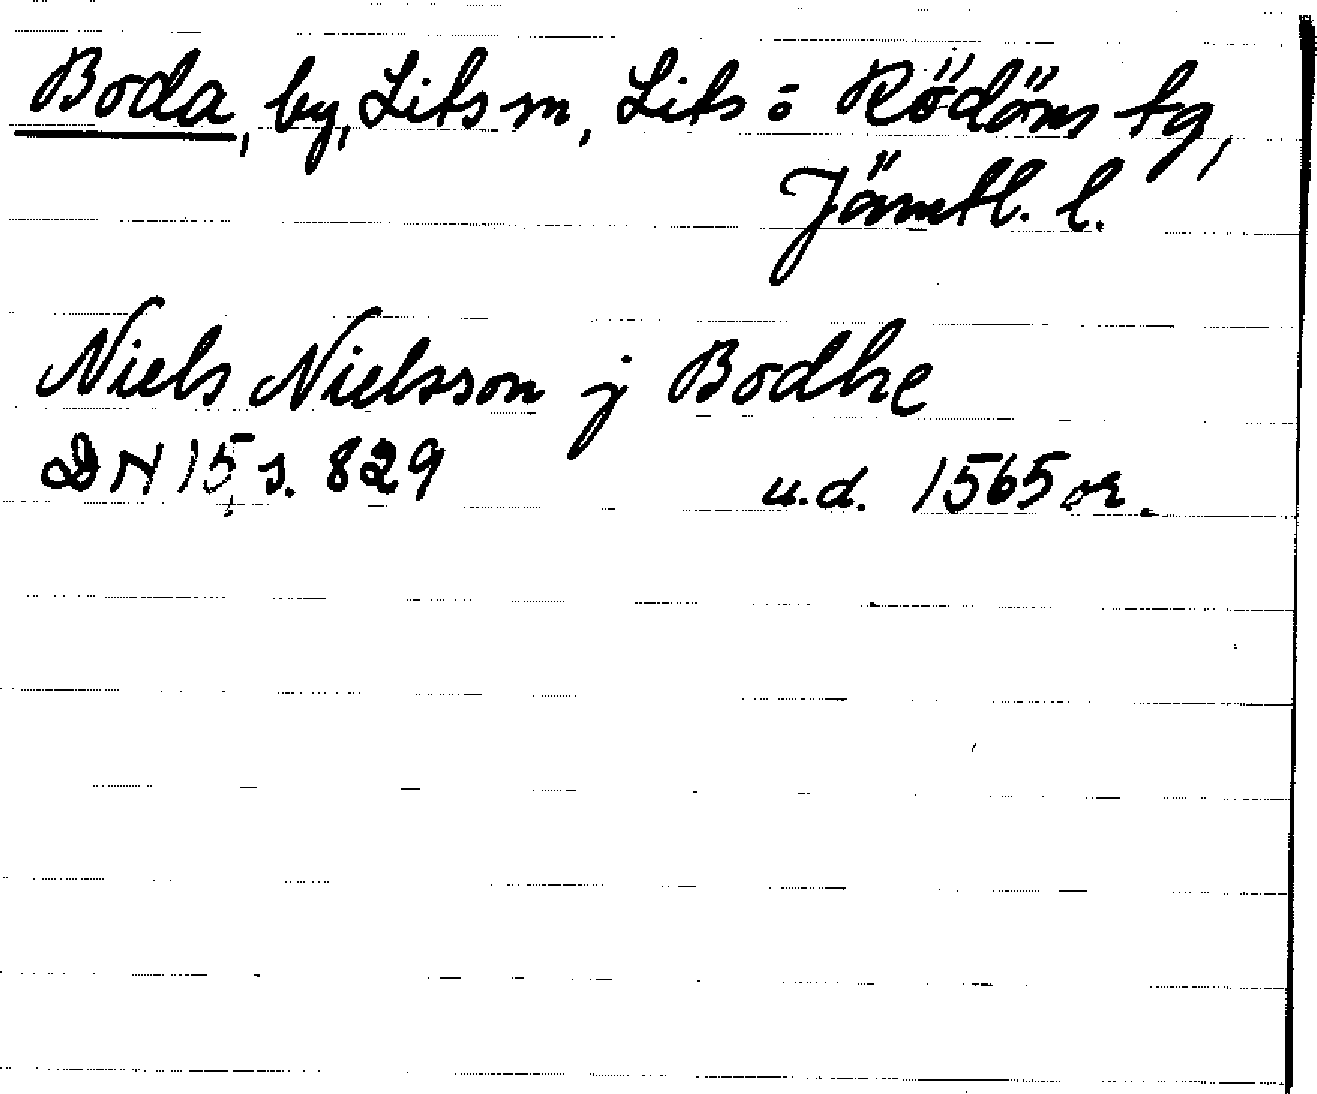 Boda, by, Lits sn, Lits o Rödöns tg,
Jämtl. l.
Niels Nielsson j Bodhe
DN 15 s. 829 u.d. 1565 or.